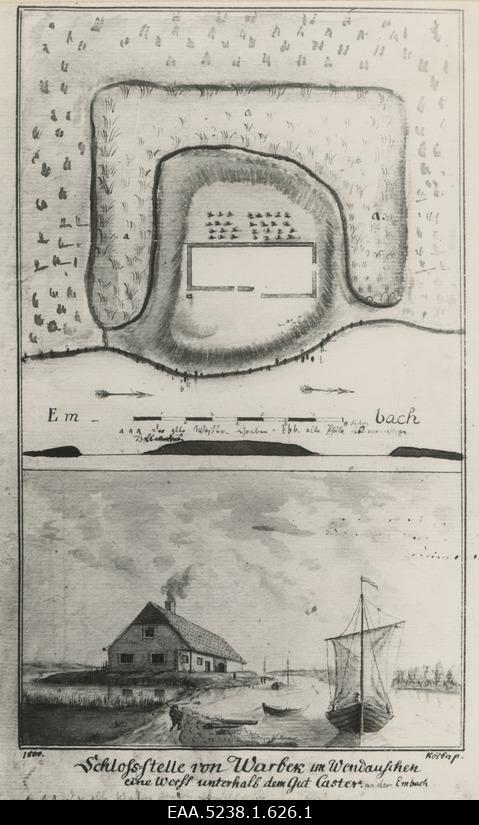 a
a.
a
Em-
bach
a a a der alte Wester-Graben. bbb. alte Pfäle
1800.
Körber p.
Schloss-stelle von Warbek im Wendauschen
eine Werst unterhalb dem Gut Caster, an dem Embach
EAA.5238.1.626.1